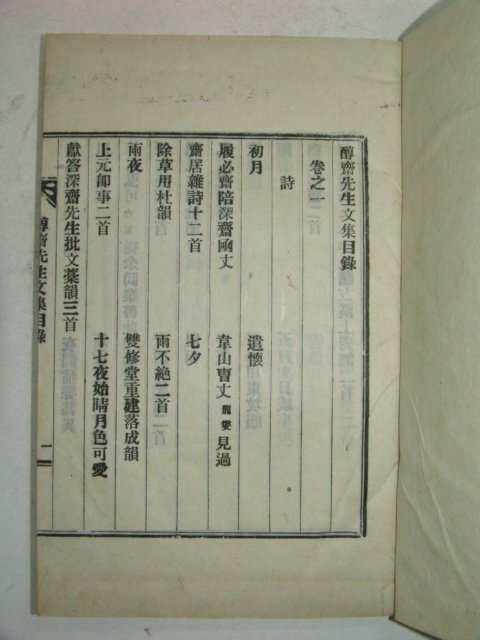 醇齋先生文集目錄
卷之一
詩
初月 遣懷
履必齋陪深齋 丈 韋山曺丈 見過
齋居雜詩十二首 七夕
除草用杜韻 雨不絶二首
雨夜 雙修堂重建落成韻
上元卽事二首 十七夜始晴月色可愛
獻答深齋先生批文藁韻三首
醇齋先生文集目錄 一